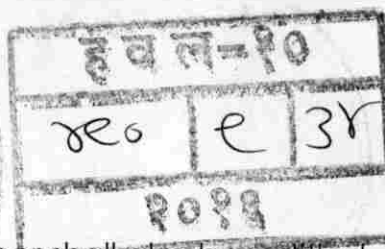 हवल-१०
४९० ९ ३४
२०१६